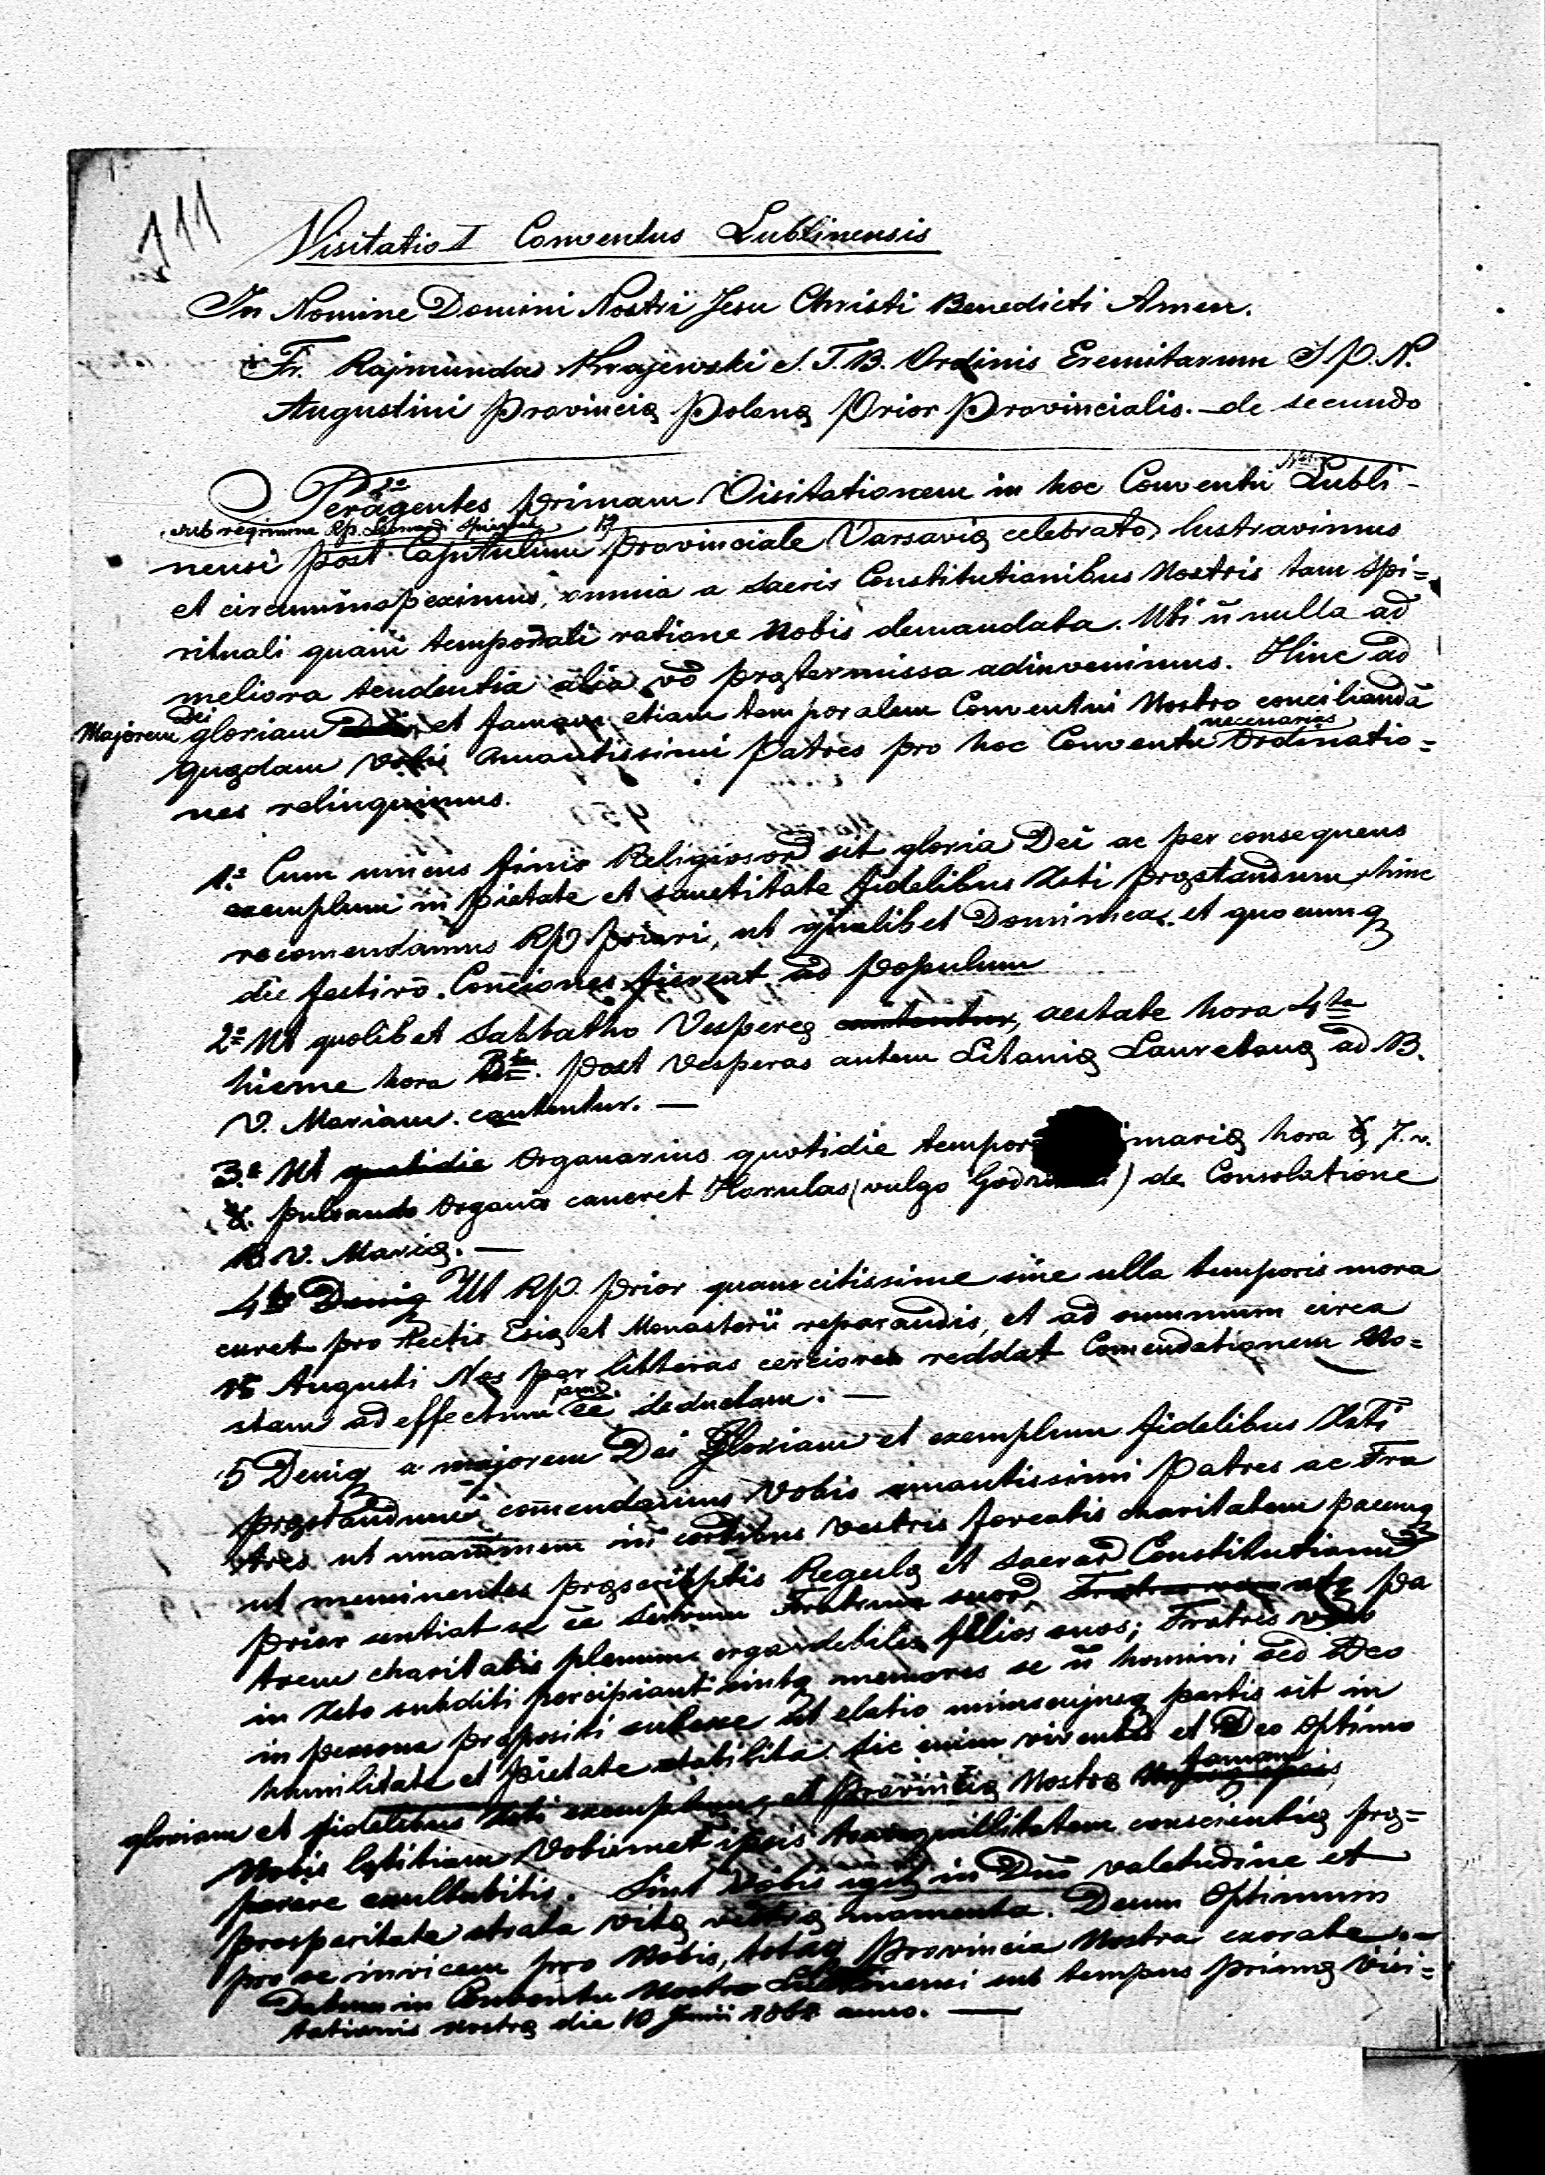 111
Visitatio I Conventus Lublinensis
In Nomine Domini Nostri Jesu Christi Benedicti Amen.
Fr. Rajmundus Krajewski S. T. B. Ordinis Eremitarum S. P. N.
Augustini Provincię Polonę Prior Provincialis. de secundo
Peragentes primam Visitationem in hoc Conventu Nro Lubli-
sub regimine Rp. Leonardi
nensi post Capitulum provinciale Varsavię celebrato, lustravimus
et circumspeximus, omnia a Sacris Constitutionibus Nostris tam spi=
rituali quam temporali ratione Nobis demandata. Ubi ñ nulla ad
meliora tendentia alia vō prętermissa adinvenimus. Hinc ad
Majorem Dei gloriam et famam etiam temporalem Conventui Nostro conciliandā
quędam vobis Amantissimi Patres pro hoc Conventu necessarias Ordinatio=
nes relinquimus.
1.º Cum unicus finis Religiosor̄ sit gloria Dei ac per consequens
exemplum in pietate et sanctitate fidelibus Xsti pręstandum, hinc
recomendamus Rp Priori, ut qualibet Dominica et quocunq
die festivo Conciones fierent ad populum
2º Ut quolibet Sabbatho Vesperę cantentur, aestate hora 4ta
hieme hora post Vesperas autem Litanię Lauretanę ad B.
V. Mariam cantentur. —
3.º Ut quotidie Organarius quotidie tempor marię hora 7. v.
8. pulsando Organa caneret Horulas (vulgo God ) de Consolatione
B. V. Marię. —
4to Deniq Ut Rp. Prior quam citissime sine ulla temporis mora
curet pro tectis Eccę et Monasterii reparandis, et ad summum circa
15 Augusti Nos per litteras cerciores reddat Comendationem No=
stam ad effectum jam ēē deductam. —
5 Deniq a majorem Dei Gloriam et exemplum fidelibus Xsti
pręstandum comendamus Vobis amantissimi Patres ac Fra
tres ut unanimem in cordibus vestris foveatis charitatem pacemq
ut meminentes pręscriptis Regulę et Sacrar̄ Constitutionū
Prior sentiat se ēē Servum Fratrum suor̄, Pa
trem charitatis plenum erga debiles filios suos; Fratres vero
in Xsto subditi percipiant sintq memores se ñ homini sed Deo
in persona prępositi subesse Ut elatio uniuscujusq partis sit in
humilitate et pietate stabilita. Sic enim viventes et Deo Optimo
gloriam et fidelibus Xsti exemplum, et Provincię Nostrę famam
Nobis lętitiam Vobismet ipsis tranquillitatem conscientię prę=
parare exultabitis. Sint Vobis igit in Dno valetudine et
prosperitate strata vitę vestrę momenta. Deum Optimum
pro se invicem pro Nobis, totaq Provincia Nostra exorate.
Datum in Conventu Nostro Lublinensi sub tempus primę Visi=
tationis nostrę die 10 Junii 186 anno. —